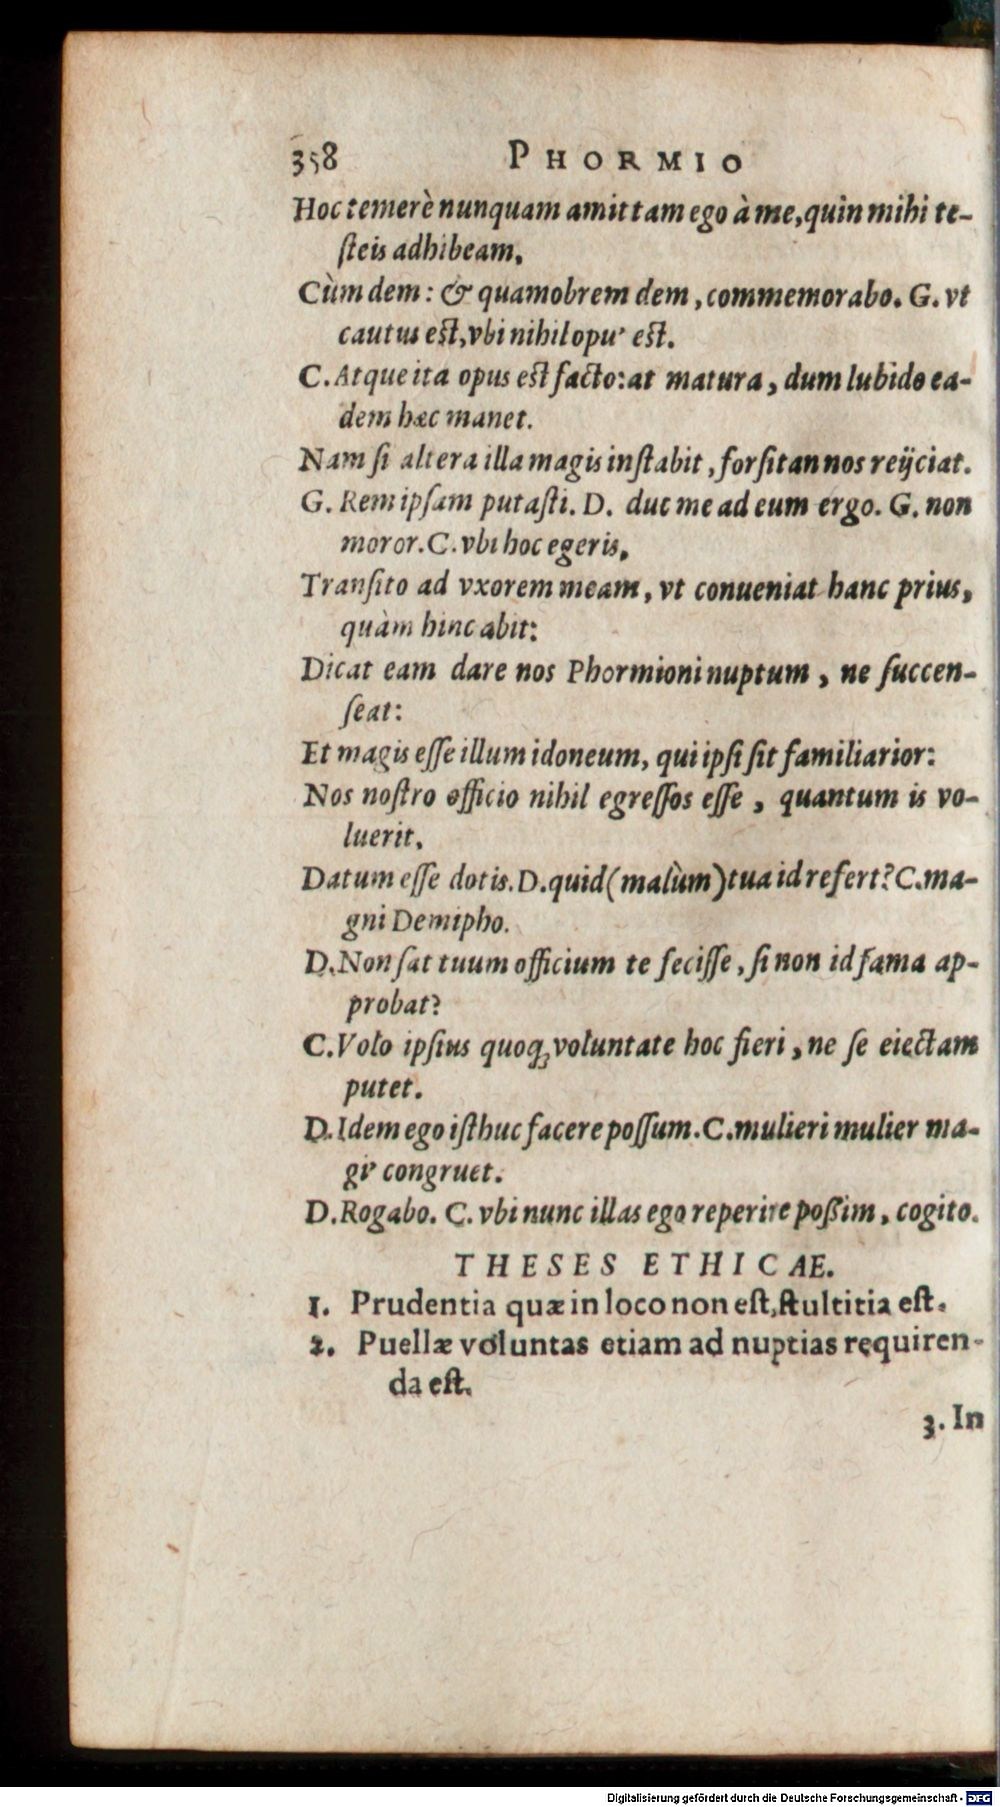 358 PHORMIO
Hoc temerè nunquam amittam ego à me, quin mihi te-
ſteis adhibeam.
Cùm dem: & quamobrem dem, commemorabo. G. vt
cautus eſt, vbi nihil opu' eſt.
C. Atque ita opus eſt facto: at matura, dum lubido ea-
dem hæc manet.
Nam ſi altera illa magis inſtabit, forſitan nos reijciat.
G. Rem ipſam putaſti. D. duc me ad eum ergo. G. non
moror. C. vbi hoc egeris,
Tranſito ad vxorem meam, vt conueniat hanc prius,
quàm hinc abit:
Dicat eam dare nos Phormioni nuptum, ne ſuccen-
ſeat:
Et magis eſſe illum idoneum, qui ipſi ſit familiarior:
Nos noſtro officio nihil egreſſos eſſe, quantum is vo-
luerit,
Datum eſſe dotis. D. quid (malùm) tua id refert? C. ma-
gni Demipho.
D. Non ſat tuum officium te feciſſe, ſi non id fama ap-
probat?
C. Volo ipſius quoq; voluntate hoc fieri, ne ſe eiectam
putet.
D. Idem ego iſthuc facere poſſum. C. mulieri mulier ma-
gi' congruet.
D. Rogabo. C. vbi nunc illas ego reperire poßim, cogito.
THESES ETHICAE.
1. Prudentia quæ in loco non eſt, ſtultitia eſt.
2. Puellæ voluntas etiam ad nuptias requiren-
da eſt.
3. In
Digitalisierung gefördert durch die Deutsche Forschungsgemeinschaft - DFG